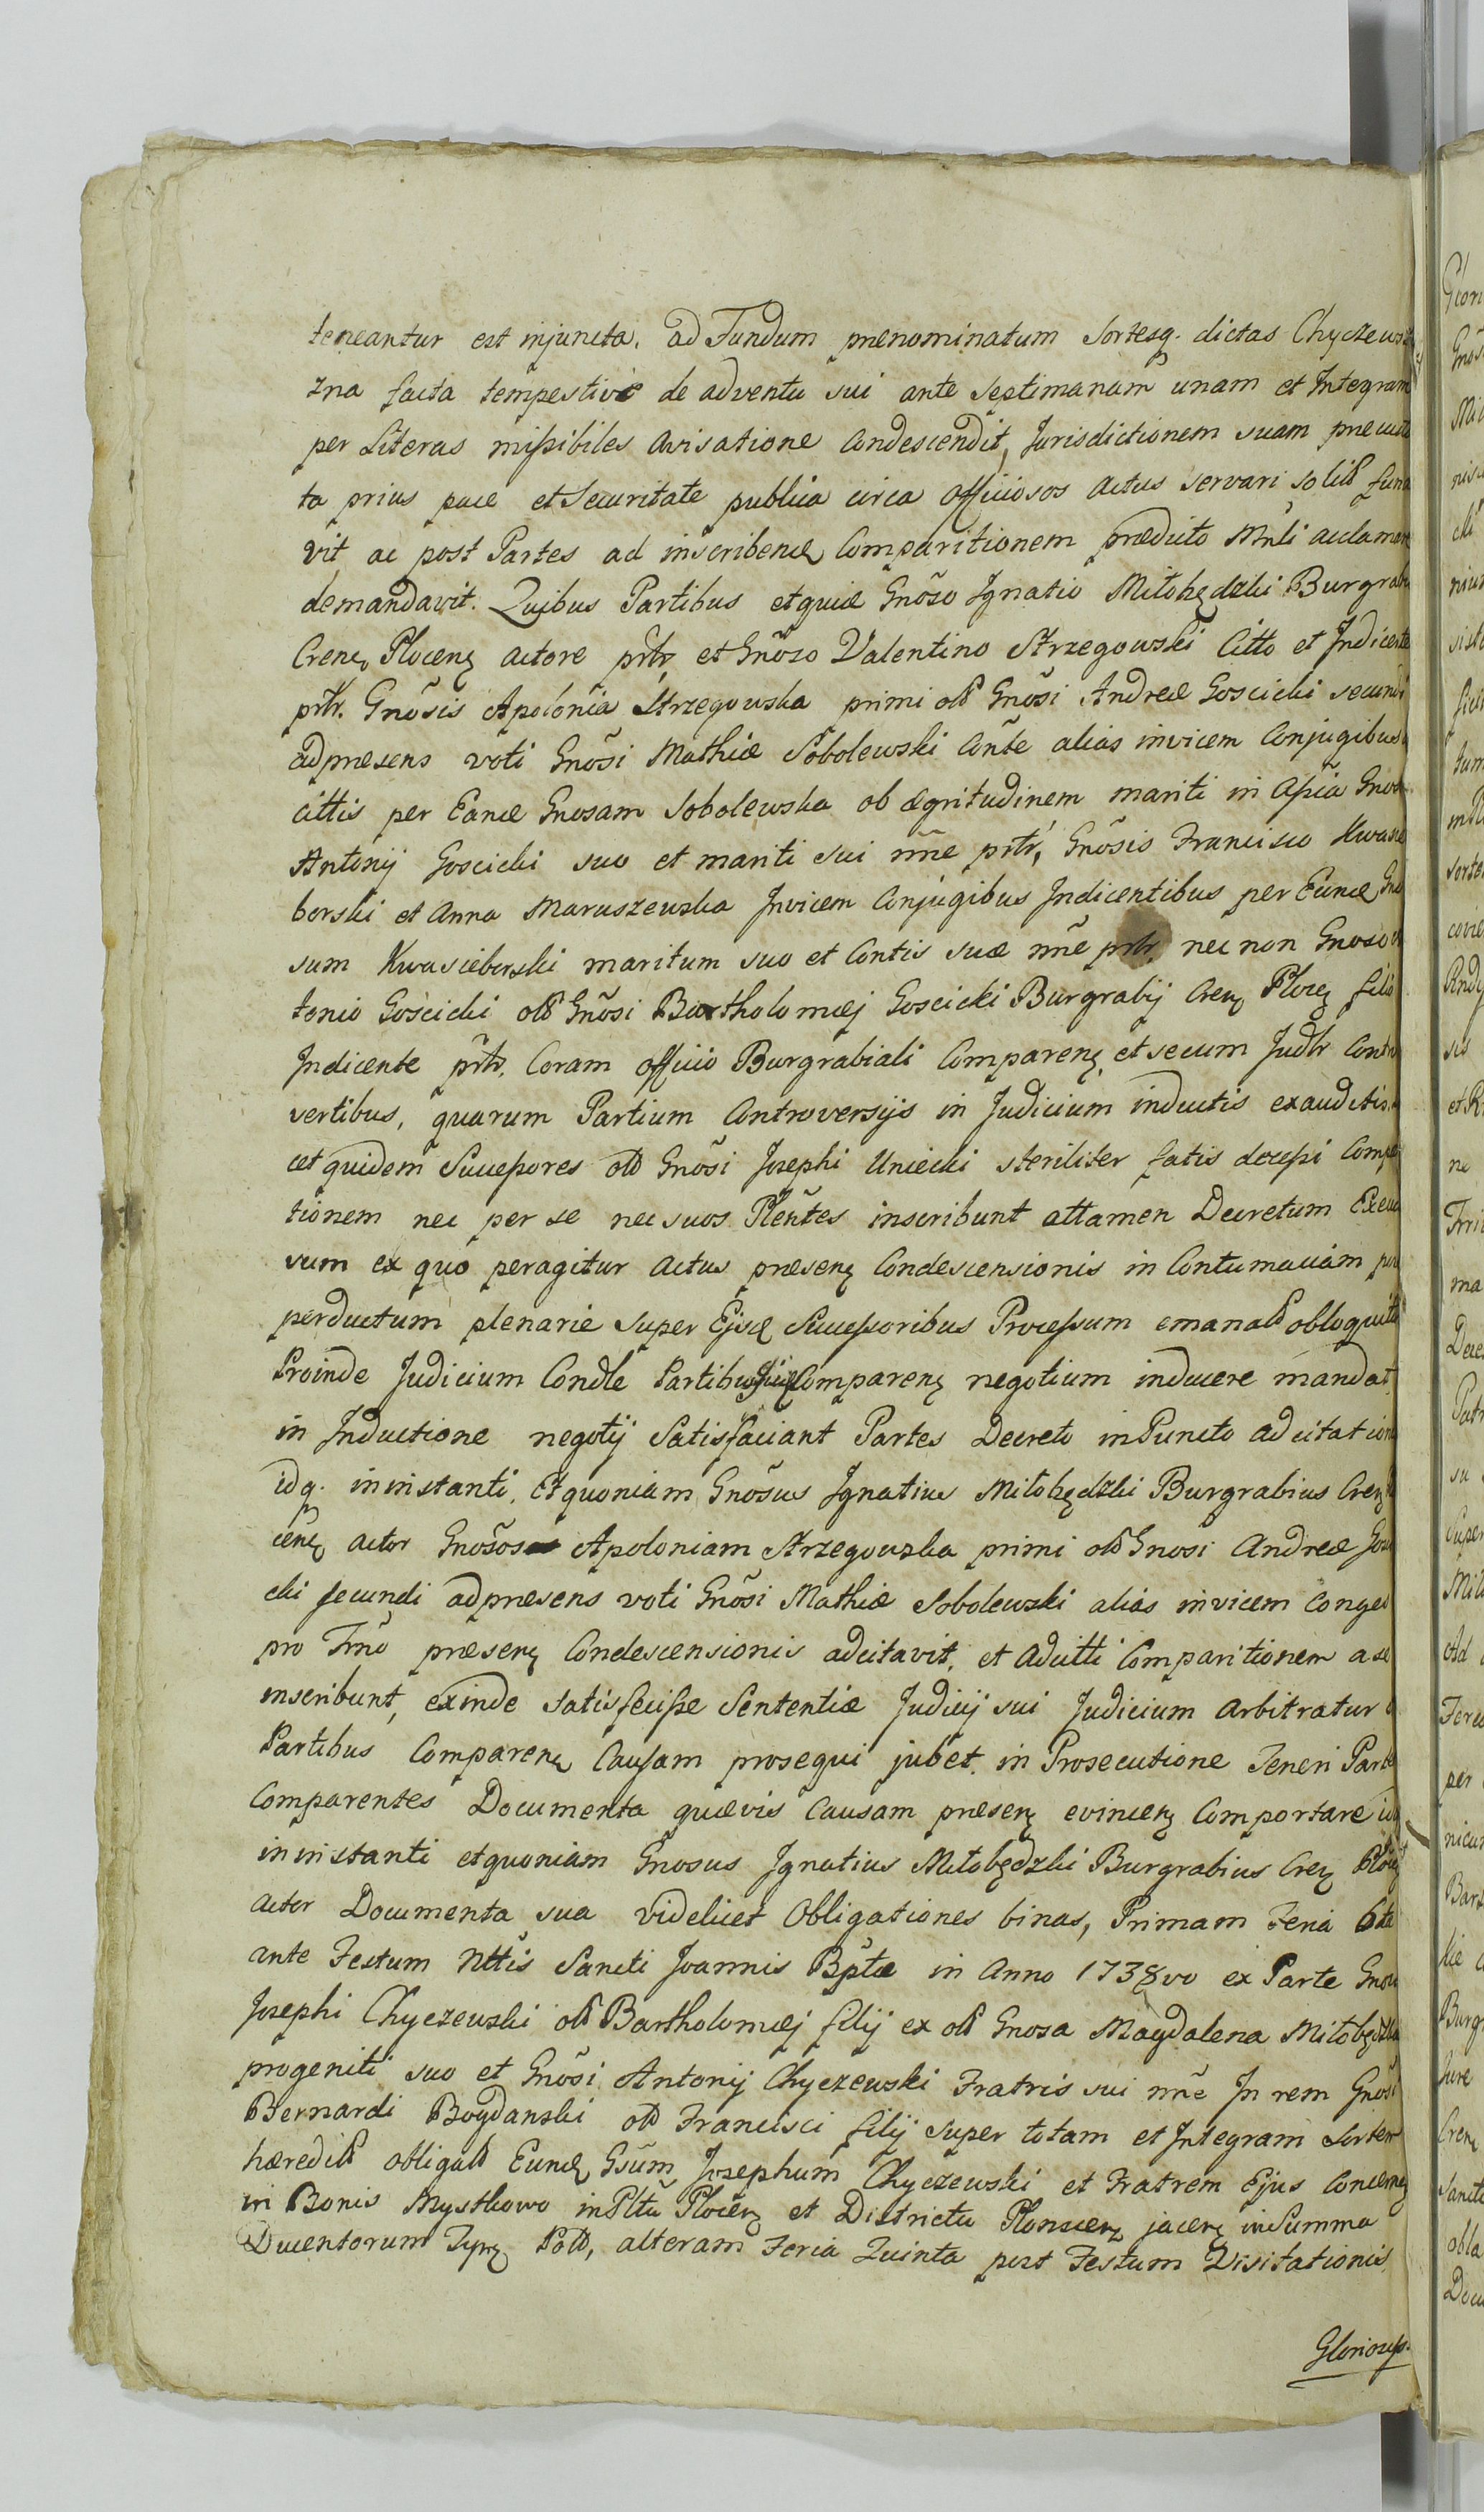 teneantur est injuncta, ad Fundum prænominatum Sortesq. dictas Chyczewsz
zna facta tempestive de adventu sui ante Septimanam unam et Integram
per Literas missibiles avisatione Condescendit, Jurisdictionem suam præcusto
ta prius pace et Securitate publica circa officiosos actus servari solit funa
vit ac post Partes ad inscribenḑ Comparitionem prædicto Mnli acclamare
demandavit. Quibus Partibus et quidē Gnõso Ignatio Miłobędzki Burgrabi
Crenȩ Płocenȩ actore prtr et Gnõso Valentino Strzegowski Citto et Indicente
prtr. Gnõsis Apolonia Strzegowska primi olt Gnõsi Andreæ Goscicki secundi
ad præsens voti Gnõsi Mathiæ Sobolewski Conte alias invicem Conjugibus
cittis per Eandē Gnosam Sobolewska ob ægritudinem mariti in Assia Gnos
Antonij Goscicki suo et mariti sui nñe prtr, Gnõsis Francisco Kwasie
borski et Anna Maruszewska Invicem Conjugibus Indicentibus per Eundē Gno
sum Kwasieborski maritum suo et Contis suæ nñe prtr. nec non Gnoso An
tonio Goscicki olt Gnõsi Bartholomæj Goscicki Burgrabij Crenȩ Płocȩ filio
Indicente prtr. Coram officio Burgrabiali Comparenȩ et secum Judtr Contro
vertibus, quarum Partium Controversijs in Judicium inductis exauditis.
cet quidem Successores olt Gnõsi Josephi Uniecki steriliter fatis decessi Compa
tionem nec per se nec suos Plentes inscribunt attamen Decretum Execu
vum ex quo peragitur Actus præsenȩ Condescensionis in Contumaciam pure
perductum plenarie super Ejisdē Successoribus Processum emanat obloquitr
Proinde Judicium Condle Partibus Comparenȩ negotium inducere mandat
in Inductione negotij Satisfaciant Partes Decreto in Puncto adcitation
idq. in instanti. Et quoniam Gnõsus Ignatius Miłobędzki Burgrabius Crenȩ
cenȩ actor Gnõsos Apoloniam Strzegowska primi olt Gnosi Andreæ Gosci
cki secundi ad præsens voti Gnõsi Mathiæ Sobolewski alias invicem Conges
pro Trno præsenȩ Condescensionis adcitavit. et Adcitti Comparitionem a se
inscribunt, exinde satisfecisse Sententiæ Judicij sui Judicium arbitratur
Partibus Comparenȩ Causam prosequi jubet. in Prosecutione Teneri Partes
Comparentes Documenta quævis Causam præsenȩ evincenȩ Comportare idq
in instanti et quoniam Gnosus Ignatius Miłobędzki Burgrabius Crenȩ Płocȩ
actor Documenta sua videlicet Obligationes binas, Primam Feria 6ta
ante Festum Nttis Sancti Joannis Bptæ in Anno 1738vo ex Parte Gnosi
Josephi Chyczewski olt Bartholomæj filij ex olt Gnosa Magdalena Miłobędzka
progeniti suo et Gnõsi Antonij Chyczewski Fratris sui nñe In rem Gnosi
Bernardi Bogdanski olt Francisci filij super totam et Integram Sortem
hæredit obligatt Eundȩ Gsum Josephum Chyczewski et Fratrem Ejus Concernȩ
in Bonis Mystkowo in Pltu Płocenȩ et Districtu Płonscenȩ jacenȩ in Summa
Ducentorum Tynȩ Polt, alteram Feria Quinta post Festum Visitationis
Gloriosiss.